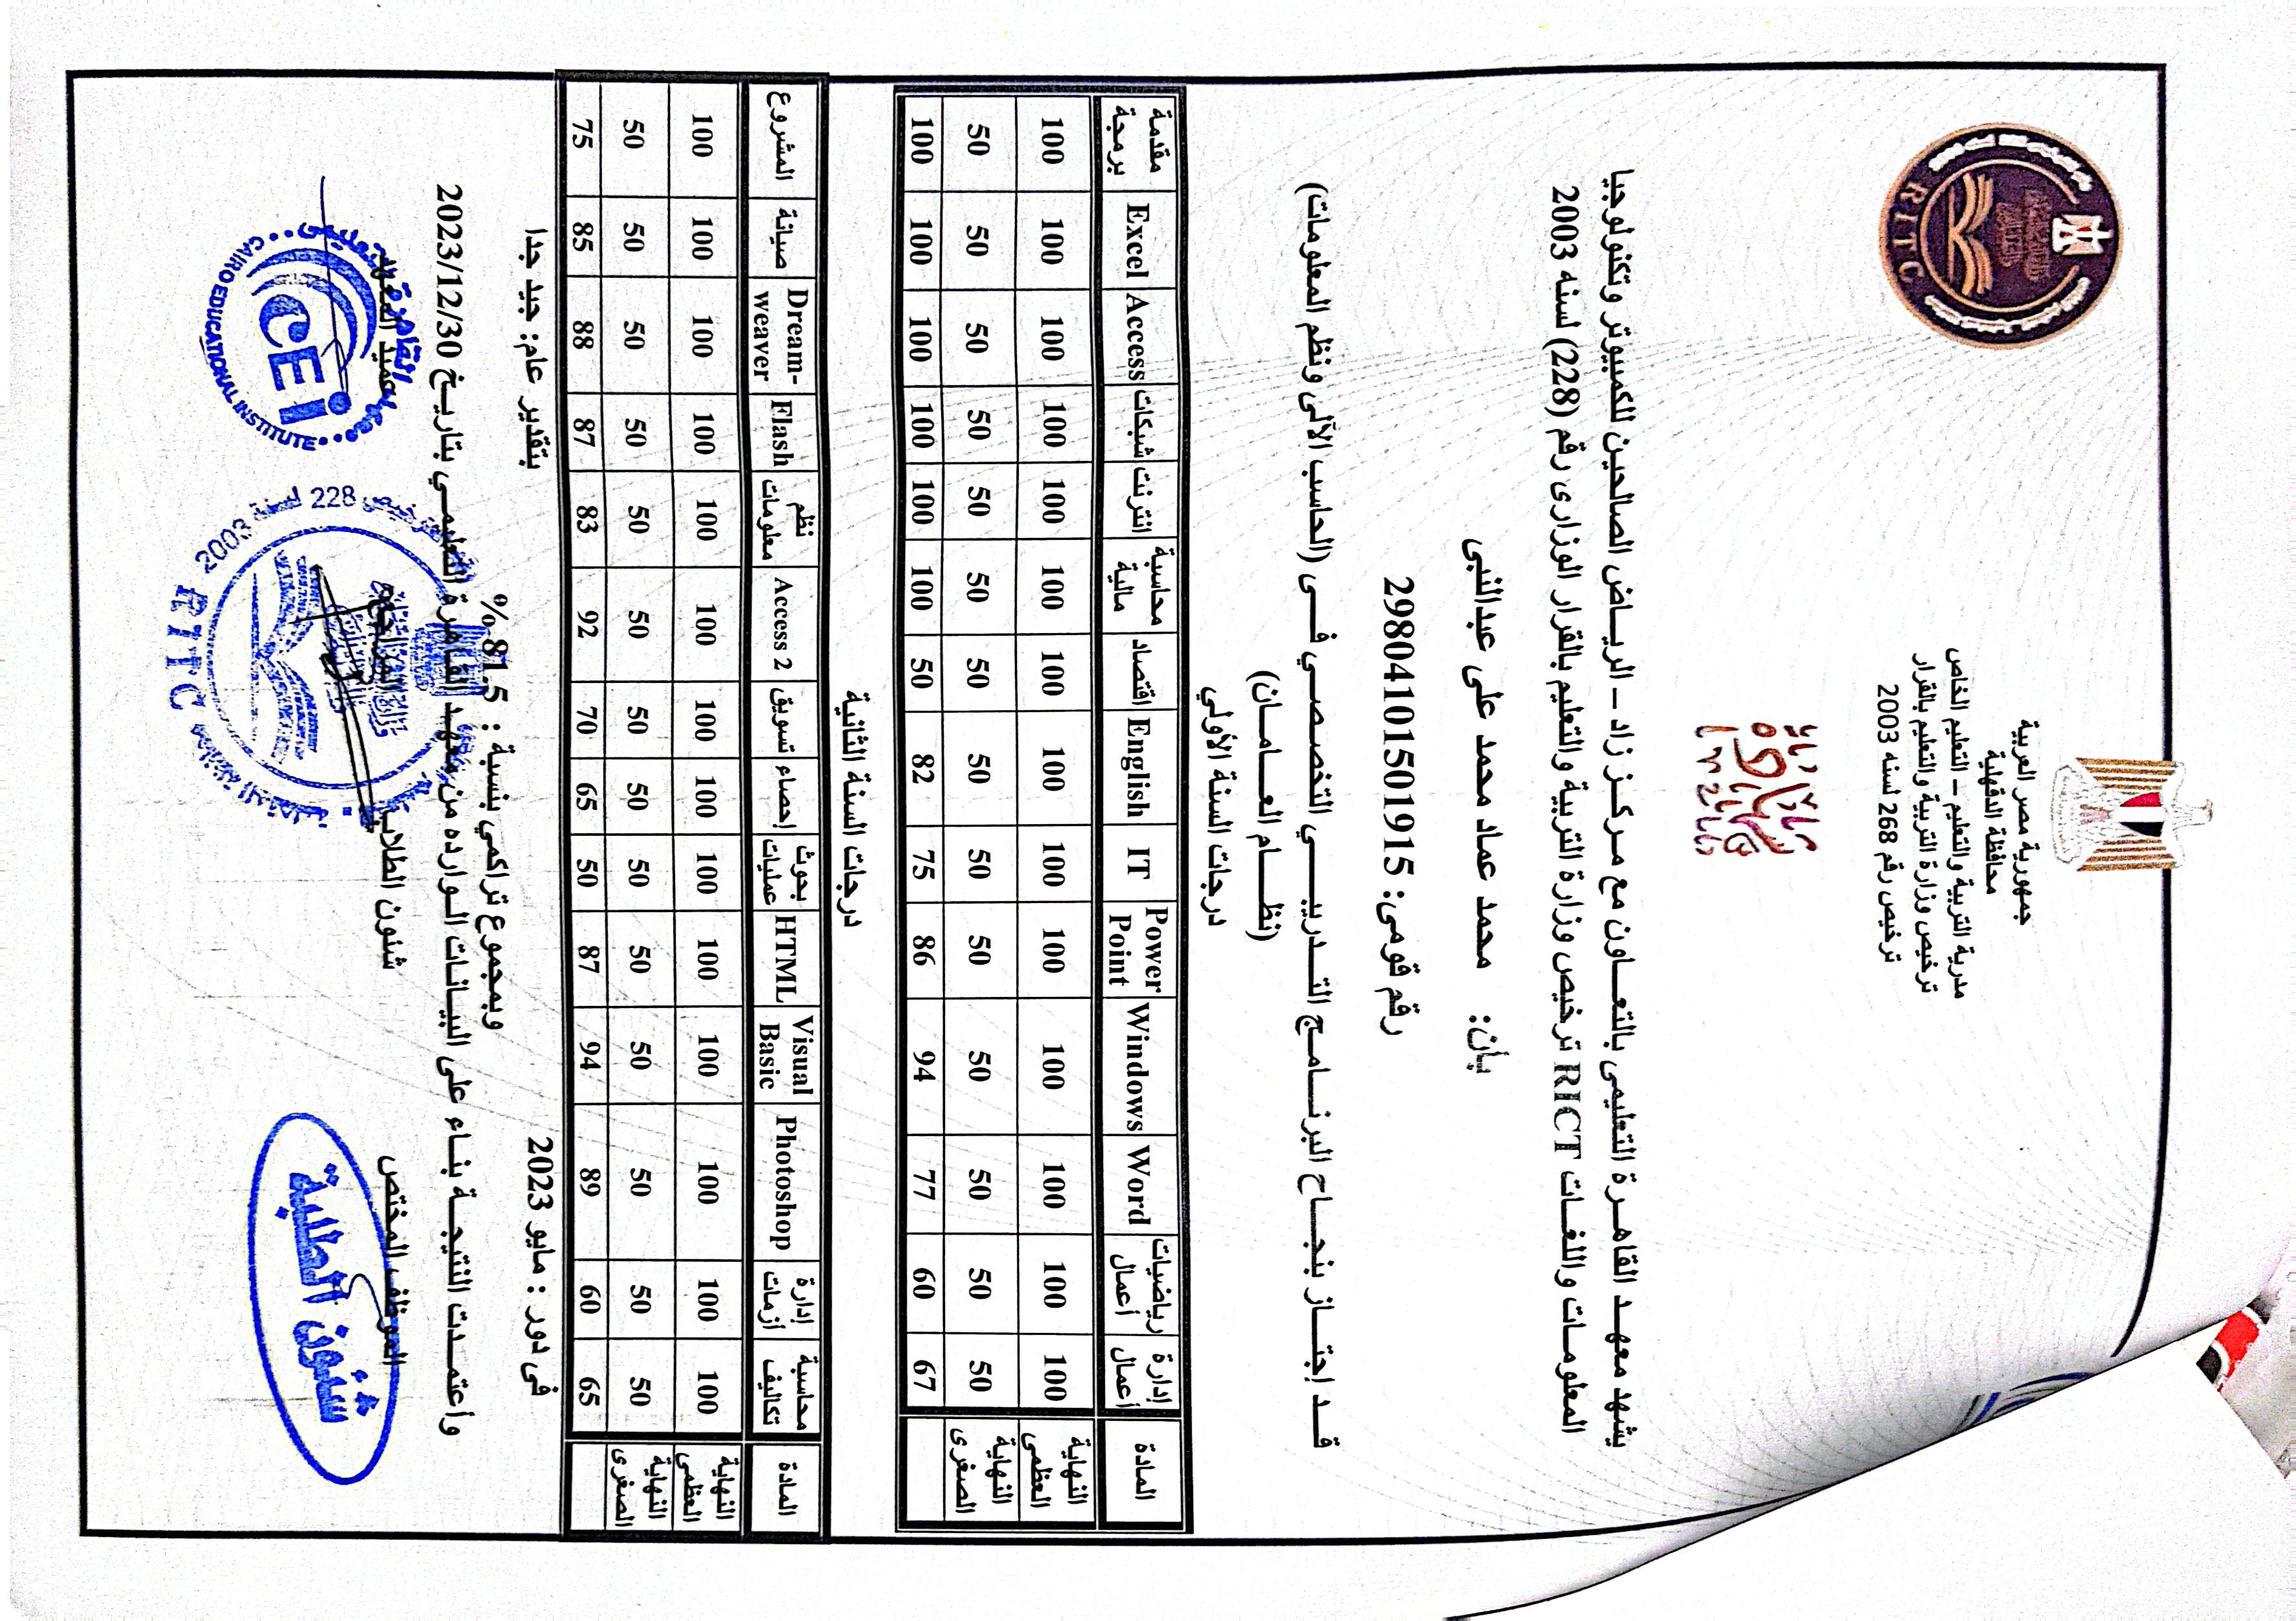 جمهورية مصر العربية
محافظة الدقهلية
مدرية التربية والتعليم – التعليم الخاص
ترخيص وزارة التربية والتعليم بالقرار
ترخيص رقم 268 لسنه 2003
RITC
يشهد معهد القاهرة التعليمى بالتعاون مع مركز زاد – الرياض الصالحين للكمبيوتر وتكنولوجيا
المعلومات واللغات RICT ترخيص وزارة التربية والتعليم بالقرار الوزارى رقم (228) لسنه 2003
بأن: محمد عماد محمد على عبدالنبى
رقم قومى: 29804101501915
قد إجتاز بنجاح البرنامج التدريبي التخصصي في (الحاسب الآلى ونظم المعلومات)
(نظام العامان)
درجات السنة الأولي
المادة إدارة أعمال رياضيات أعمال Word Windows Power Point IT English اقتصاد محاسبة مالية انترنت شبكات Access Excel مقدمة برمجة
النهاية العظمى 100 100 100 100 100 100 100 100 100 100 100 100 100 100
النهاية الصغرى 50 50 50 50 50 50 50 50 50 50 50 50 50 50
67 60 77 94 86 75 82 50 100 100 100 100 100 100
درجات السنة الثانية
المادة محاسبة تكاليف إدارة أزمات Photoshop Visual Basic HTML بحوث عمليات إحصاء تسويق Access 2 نظم معلومات Flash Dream-weaver صيانة المشروع
النهاية العظمى 100 100 100 100 100 100 100 100 100 100 100 100 100 100
النهاية الصغرى 50 50 50 50 50 50 50 50 50 50 50 50 50 50
65 60 89 94 87 50 65 70 92 83 87 88 85 75
فى دور : مايو 2023 بتقدير عام: جيد جدا
وبمجموع تراكمي بنسبة : 81.5 %
وأعتمدت النتيجة بناء على البيانات الوارده من معهد القاهرة التعليمي بتاريخ 2023/12/30
الموظف المختص شئون الطلاب المراجع عميد المعهد
شئون الطلبة
228 لسنة 2003
RITC
CEi
CAIRO EDUCATIONAL INSTITUTE